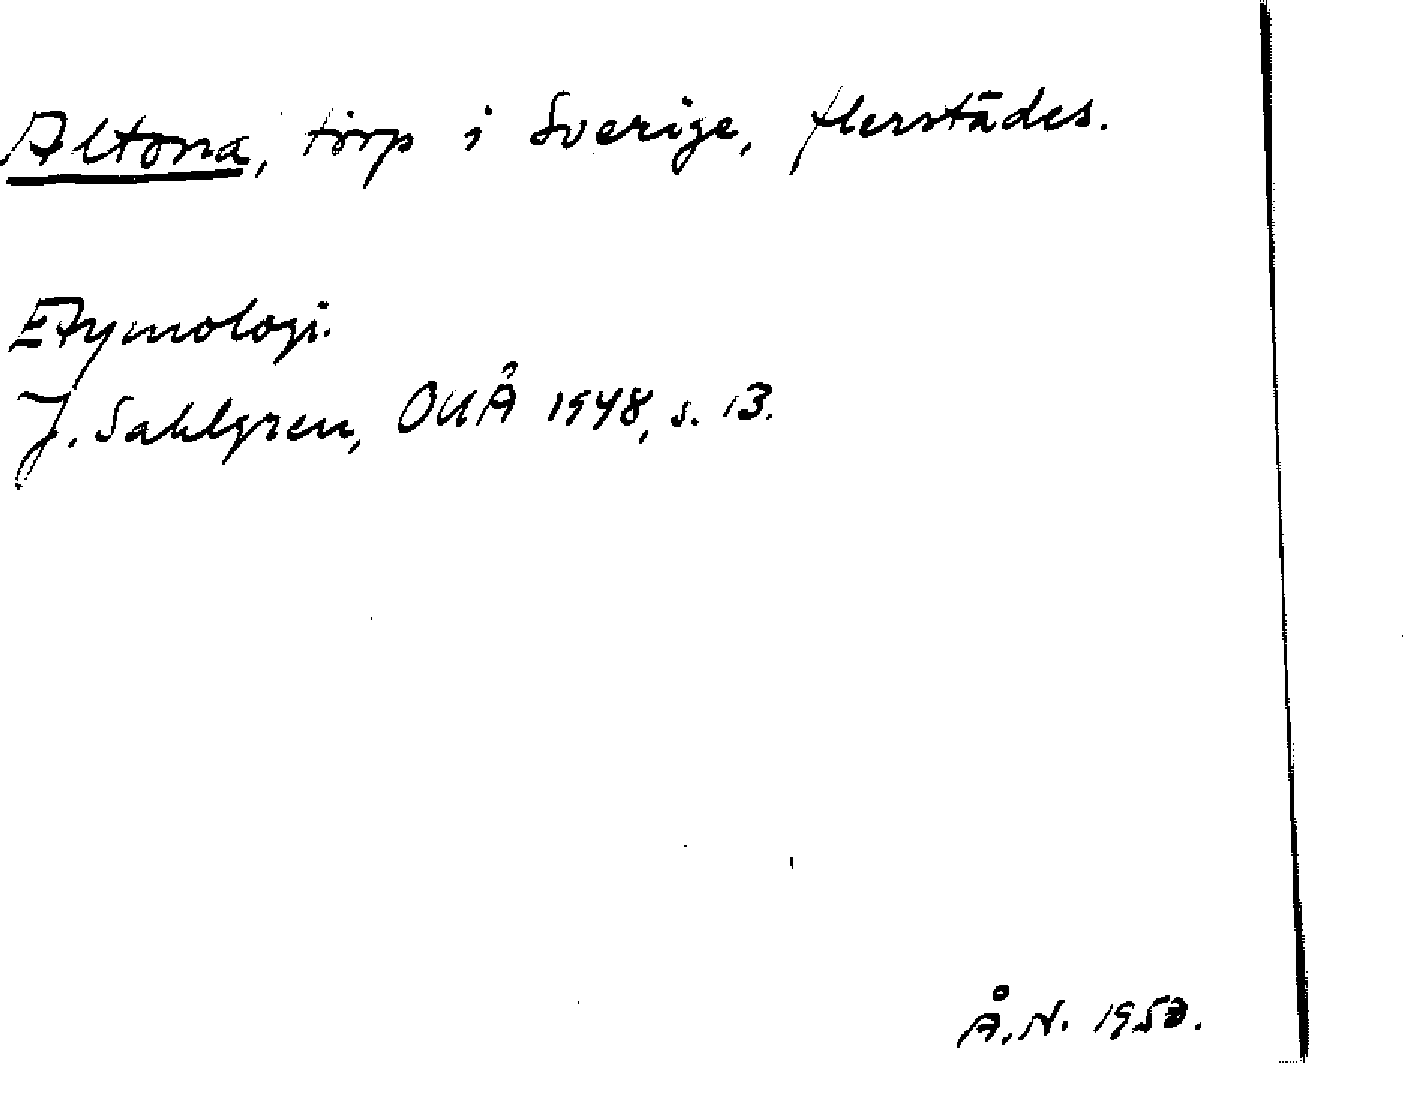 Altona, torp i Sverige, flerstädes.
Etymologi.
J. Sahlgren, OUÅ 1948, s. 13.
Å.N. 1950.